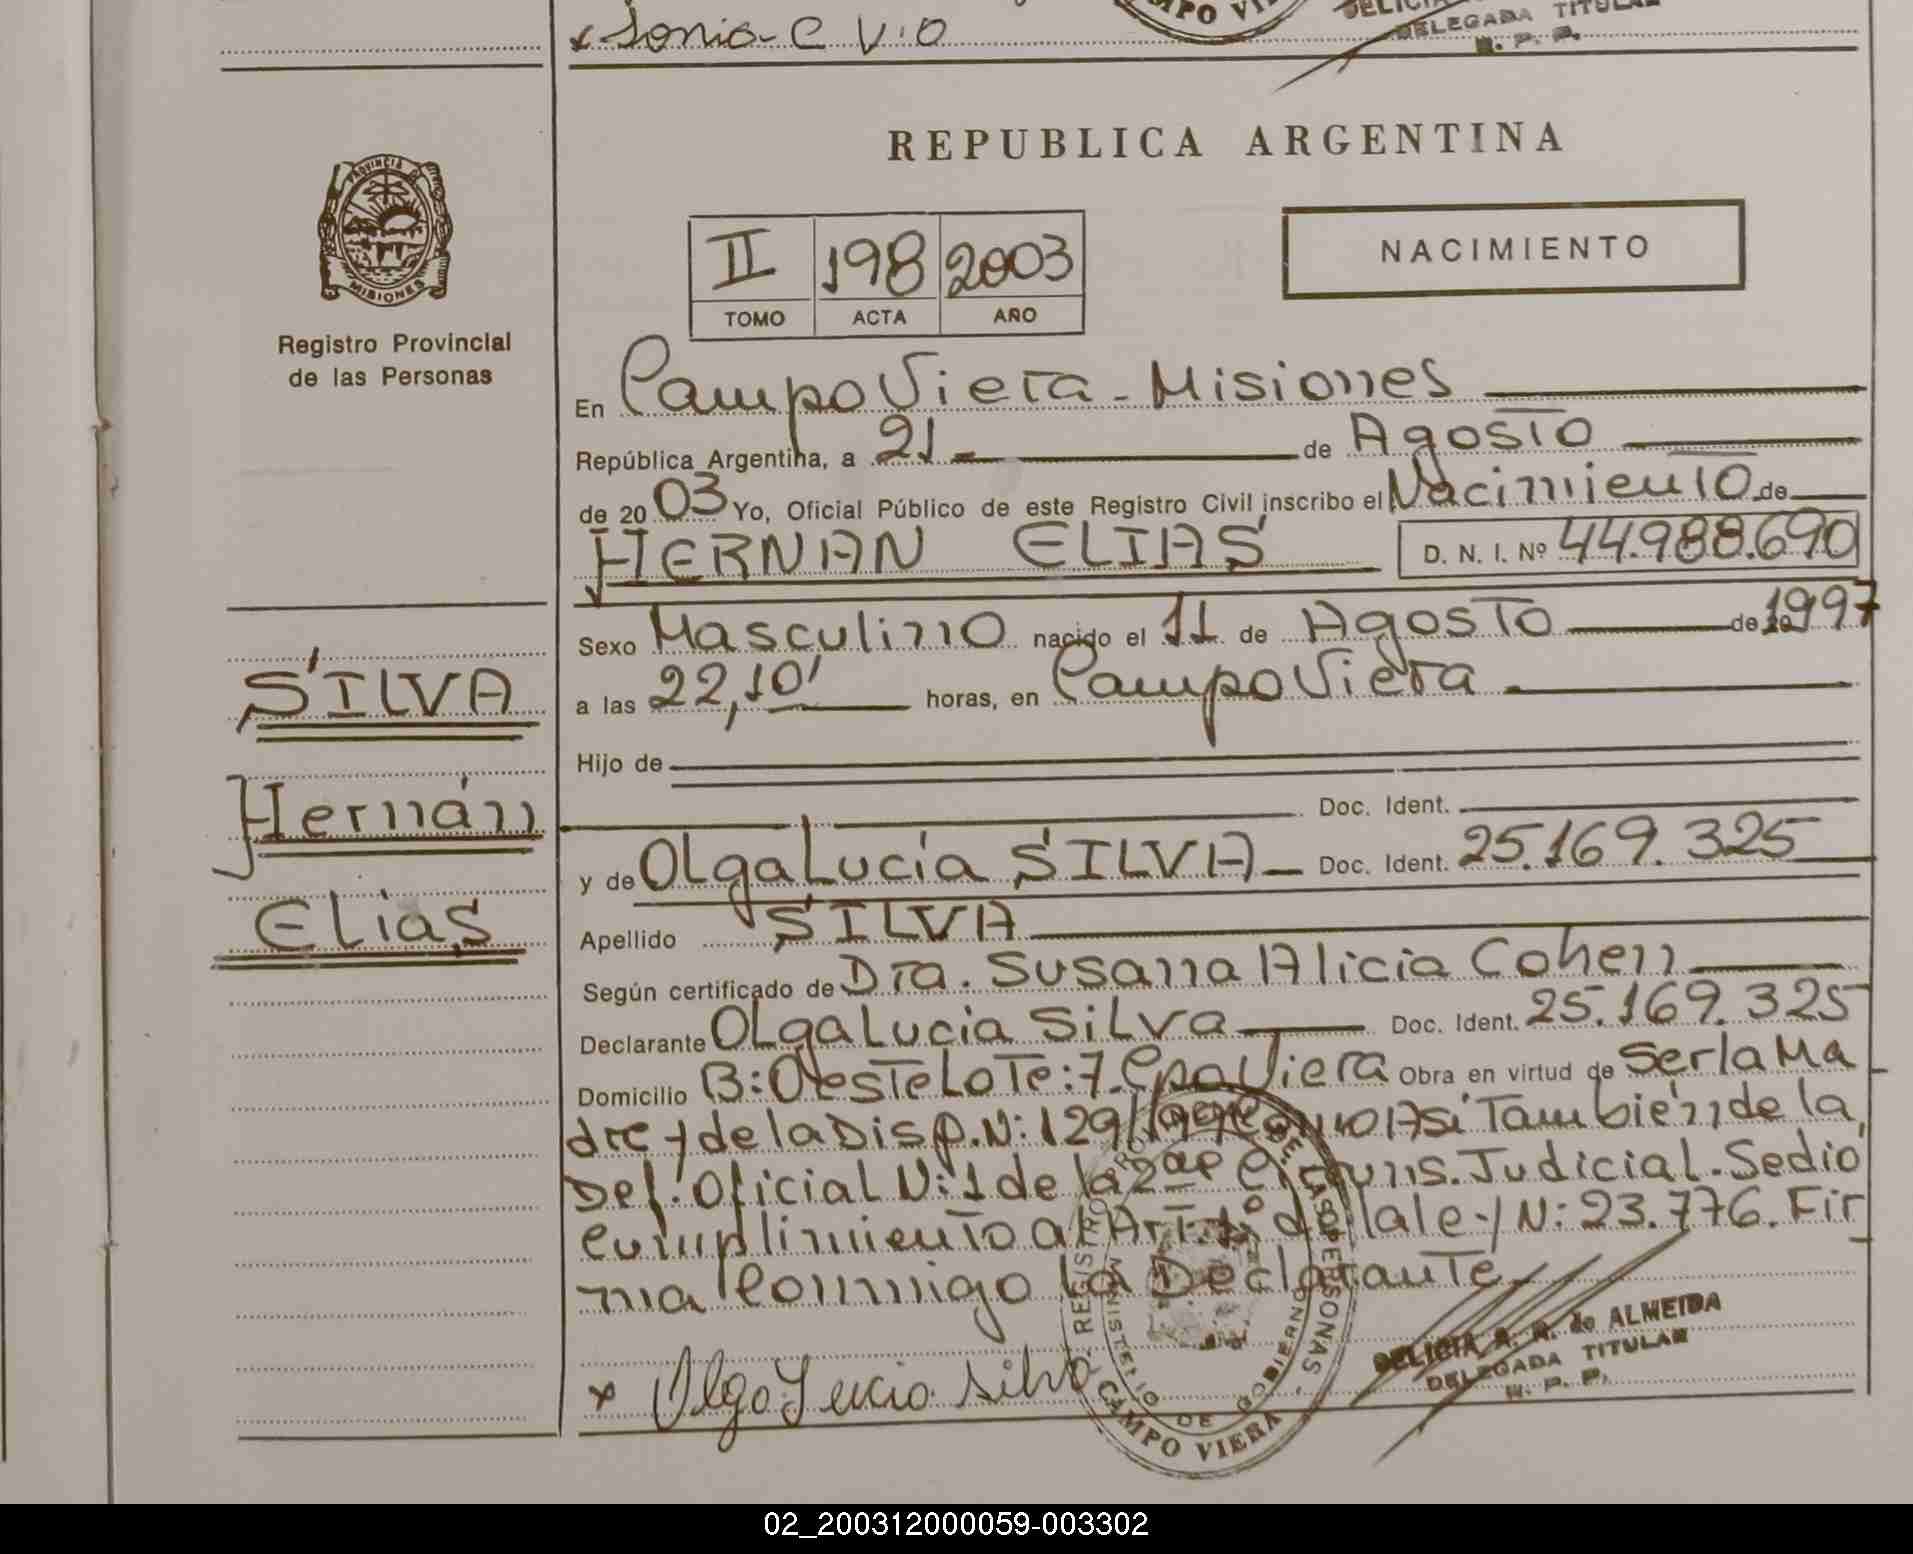 Sonia C V.O
CAMPO VI
DELEGADA TITULAR
R. P. P.
PROVINCIA DE
MISIONES
Registro Provincial
de las Personas
REPUBLICA ARGENTINA
II 198 2003
TOMO ACTA AÑO
NACIMIENTO
En Campo Viera - Misiones
República Argentina, a 21 de Agosto
de 2003 Yo, Oficial Público de este Registro Civil inscribo el Nacimiento de
HERNAN ELIAS D. N. I. Nº 44.988.690
Sexo Masculino nacido el 11 de Agosto de 1997
a las 22,10' horas, en Campo Viera
Hijo de
Doc. Ident.
y de Olga Lucia SILVA Doc. Ident. 25.169.325
Apellido SILVA
Según certificado de Dra. Susana Alicia Cohen
Declarante Olga Lucia Silva Doc. Ident. 25.169.325
Domicilio B: Oeste Lote: 7. Cpo Viera Obra en virtud de Ser la Ma
dre y de la Disp. N: 129/ Asi También de la
Def. Oficial N: 1 de la 2da Circuns. Judicial. Se dió
cumplimiento al Art. 1º de la ley N: 23.776. Fir
ma Conmigo la Declarante
SILVA
Hernán
Elias
x Olga Lucia Silva
REGISTRO DE LAS PERSONAS
MINISTERIO DE GOBIERNO
CAMPO VIERA
DELICIA A. R. de ALMEIDA
DELEGADA TITULAR
R. P. P.
02_200312000059-003302